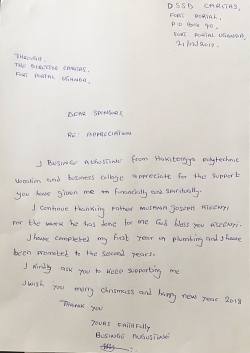 DSSD CARITAS,
FORT PORTAL,
P.O BOX 90,
FORT PORTAL UGANDA,
21/12/2017.
THROUGH,
THE DIRECTOR CARITAS,
FORT PORTAL UGANDA,
DEAR SPONSORS,
RE: APPRECIATION
I BUSINGE AUGUSTINE from Hakibengya polytechnic
vocation and business college appreciate for the support
you have given me in financially and spiritually.
I continue thanking Father MUSMAN JOSEPH ATEENYI
for the work he has done to me God bless you ATEENYI.
I have completed my first year in plumbing and I have
been promoted to the second years.
I kindly ask you to keep supporting me
I wish you merry christmass and happy new year 2018
THANK YOU
YOURS FAITHFULLY
BUSINGE AUGUSTINE